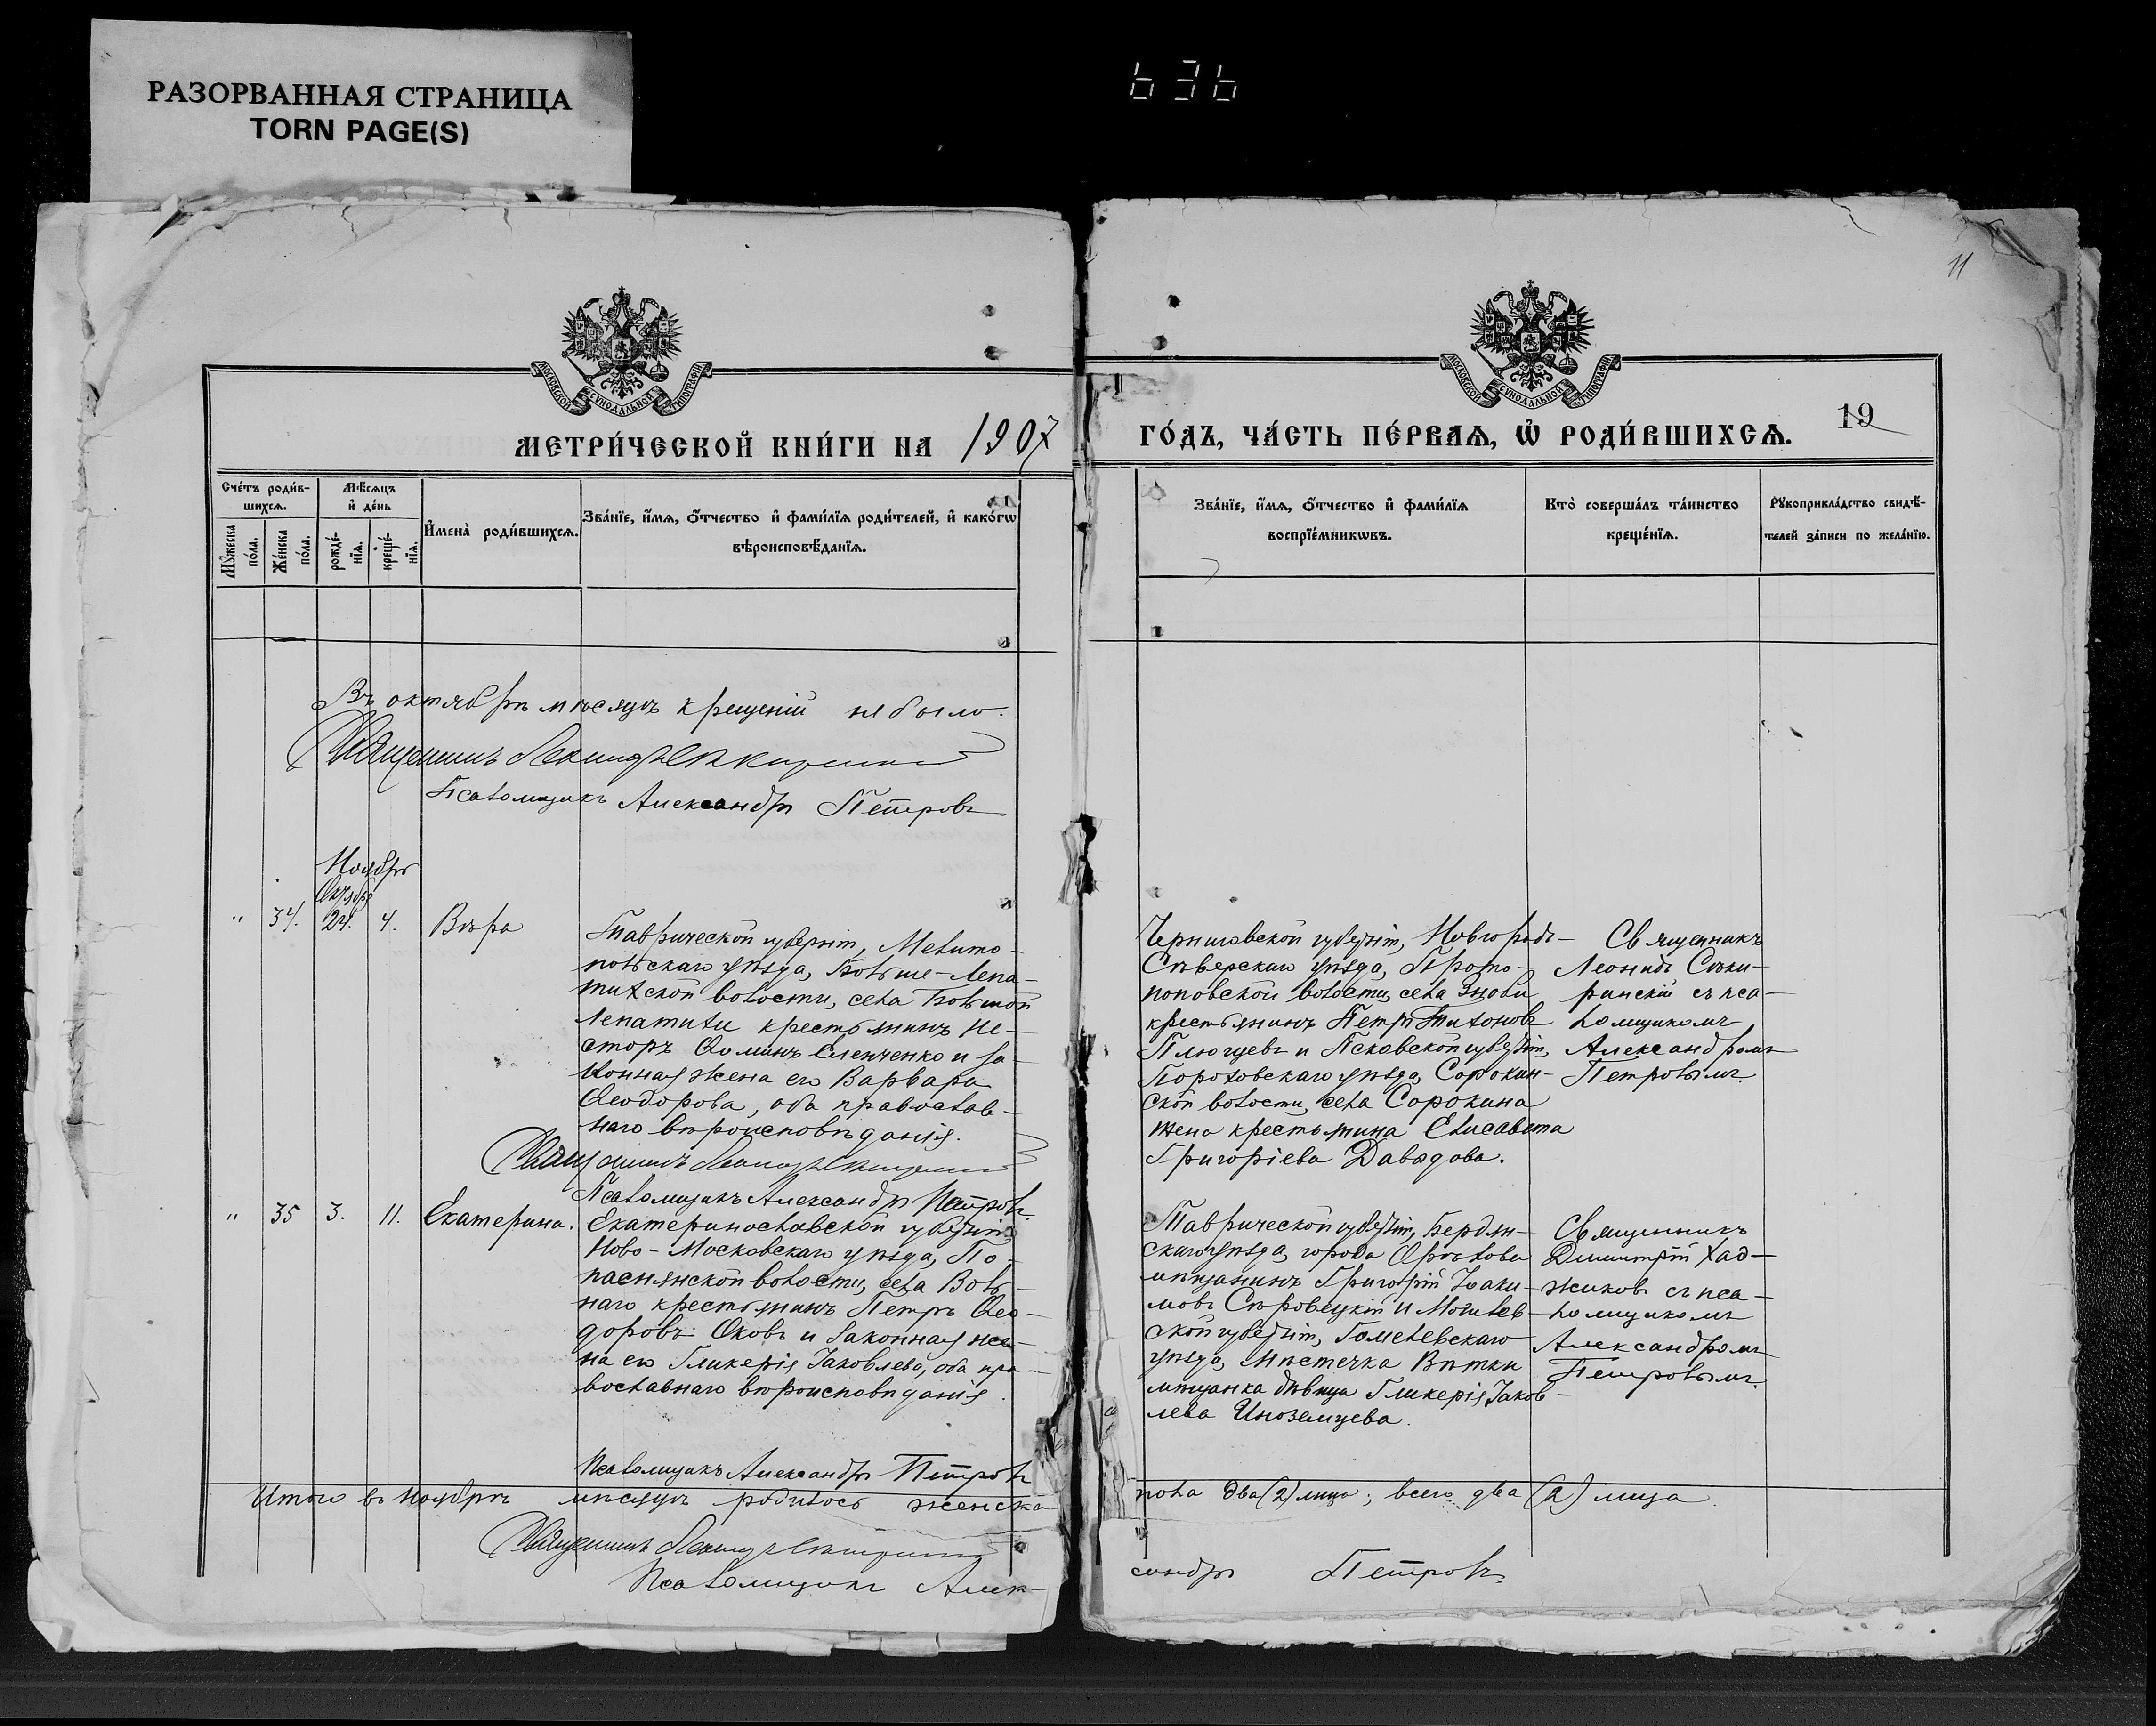 РАЗОРВАННАЯ СТРАНИЦА
TORN PAGE(S)
636
11
МОСКОВСКОЙ СѴНОДАЛЬНОЙ ТИПОГРАФІИ
МОСКОВСКОЙ СѴНОДАЛЬНОЙ ТИПОГРАФІИ
МЕТРИ́ЧЕСКОЙ КНИ́ГИ НА 1907
ГО́ДЪ, ЧА́СТЬ ПЕ́РВАЯ, Ѡ РОДИ́ВШИХСЯ.
19
Сче́тъ роди́в-
шихся.
Мѣ́сяцъ
и де́нь
Му́жеска
по́ла.
Же́нска
по́ла.
рожде́-
нїя.
креще́-
нїя.
Имена̀ роди́вшихся.
Зва́нїе, и́мя, о́тчество и фами́лїя роди́телей, и како́гѡ
вѣроисповѣ́данїя.
Зва́нїе, и́мя, о́тчество и фами́лїя
воспрїе́мникѡвъ.
Кто̀ соверша́лъ та́инство
креще́нїя.
Рукоприкла́дство свидѣ́-
телей за́писи по жела́нїю.
Въ октябрѣ мѣсяцѣ крещеній не было.
Священникъ Леонидъ Секиринскій
Псаломщикъ Александръ Петровъ
Ноябрь
Октября
" 34. 24. 4. Вѣра
Таврической губерніи, Мелито-
польскаго уѣзда, Больше-Лепа-
тихской волости, села Большой
Лепатихи крестьянинъ Не-
сторъ Ѳоминъ Еленченко и за-
конная жена его Варвара
Ѳеодорова, оба православ-
наго вѣроисповѣданія.
Священникъ Леонидъ Секиринскій
Псаломщикъ Александръ Петровъ.
Черниговской губерніи, Новгородъ-
Сѣверскаго уѣзда, Прото-
поповской волости, села Зноби
крестьянинъ Петръ Тихоновъ
Плющевъ и Псковской губерніи,
Порховскаго уѣзда, Сорокин-
ской волости, села Сорокина
жена крестьянина Елисавета
Григоріева Давыдова.
Священникъ
Леонидъ Секи-
ринскій съ пса-
ломщикомъ
Александромъ
Петровымъ.
" 35 3. 11. Екатерина.
Екатеринославской губерніи,
Ново-Московскаго уѣзда, По-
паснянской волости, села Воль-
наго крестьянинъ Петръ Ѳео-
доровъ Оковъ и законная же-
на его Гликерія Іаковлева, оба пра-
вославнаго вѣроисповѣданія.
Псаломщикъ Александръ Петровъ
Таврической губерніи, Бердян-
скаго уѣзда, города Орѣхова
мѣщанинъ Григорій Іоаки-
мовъ Сѣровецкій и Могилев-
ской губерніи, Гомелевскаго
уѣзда, мѣстечка Вѣтки
мѣщанка дѣвица Гликерія Іаков-
лева Иноземцева.
Священникъ
Димитрій Хад-
жиковъ съ пса-
ломщикомъ
Александромъ
Петровымъ.
Итого въ ноябрѣ мѣсяцѣ родилось женска
пола два (2) лица; всего два (2) лица.
Священникъ Леонидъ Секиринскій
Псаломщикъ Алек-
сандръ Петровъ.